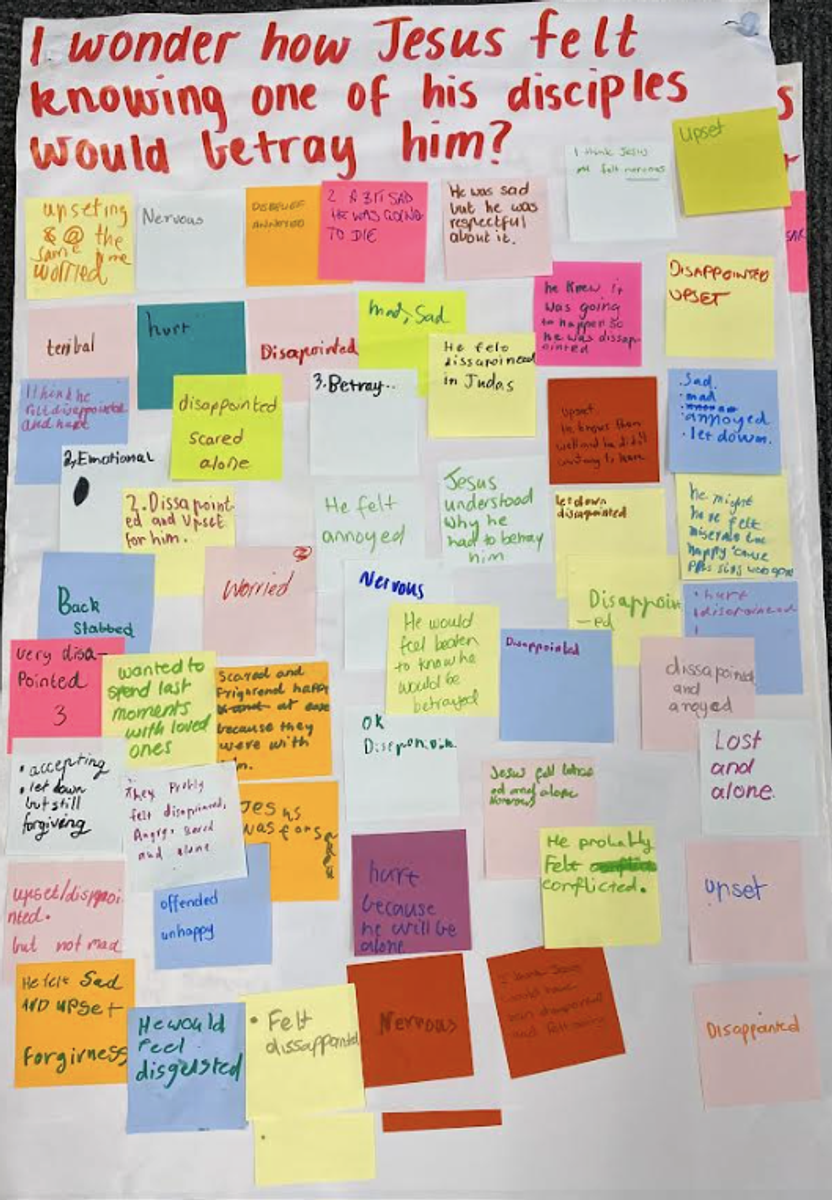 I wonder how Jesus felt
knowing one of his disciples
would betray him?
I think Jesus
felt nervous
Upset
upseting
& @ the
same time
worried
Nervous
DISBELIEF
ANNOYED
SAD
HE WAS GOING
TO DIE
He was sad
but he was
respectful
about it.
DISAPPOINTED
UPSET
he knew it
was going
to happen so
he was dissap-
ointed
terribal
hurt
Disapointed
mad, Sad
He felt
dissapoineed
in Judas
I think he
felt disappointed
and hurt
disappointed
scared
alone
3. Betray..
upset
He knows them
well and he didn't
Sad.
• mad
• annoyed
• let down.
2, Emotional
2. Dissapoint-
ed and upset
for him.
He felt
annoyed
Jesus
understood
why he
had to betray
him
let down
disapointed
he might
have felt
miserable
happy 'cause
Back
Stabbed
Worried
2
Nervous
He would
feel beaten
to know he
would be
betrayed
Disappoin
-ed
• hurt
Disappointed
very disa-
Pointed
3
wanted to
spend last
moments
with loved
ones
Scared and
happy
at ease
because they
were with
dissapoined
and
anoyed
OK
Lost
and
alone.
• accepting
• let down
but still
forgiving
They Probly
felt disapoined,
Angry, scared
and alone
Jesus
was
Jesus fell
ed and alone
Nervous
He probably
Felt
conflicted.
upset/disppoi-
nted.
but not mad
offended
unhappy
hurt
because
he will be
alone
upset
He felt Sad
AND upset
forgivness
He would
feel
disgusted
• Felt
dissappointed
Nervous
I think Jesus
would have
been disapointed
and felt
Disappointed